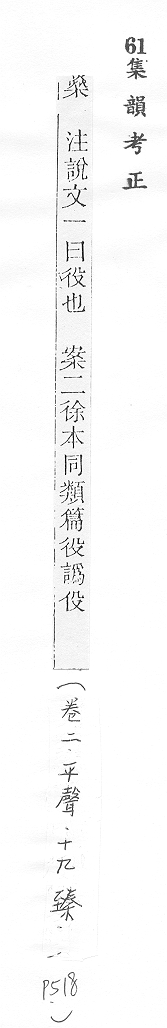 61集韻考正
燊 注說文一曰役也 案二徐本同類篇役譌伇
(卷二．平聲．十九臻．P518)